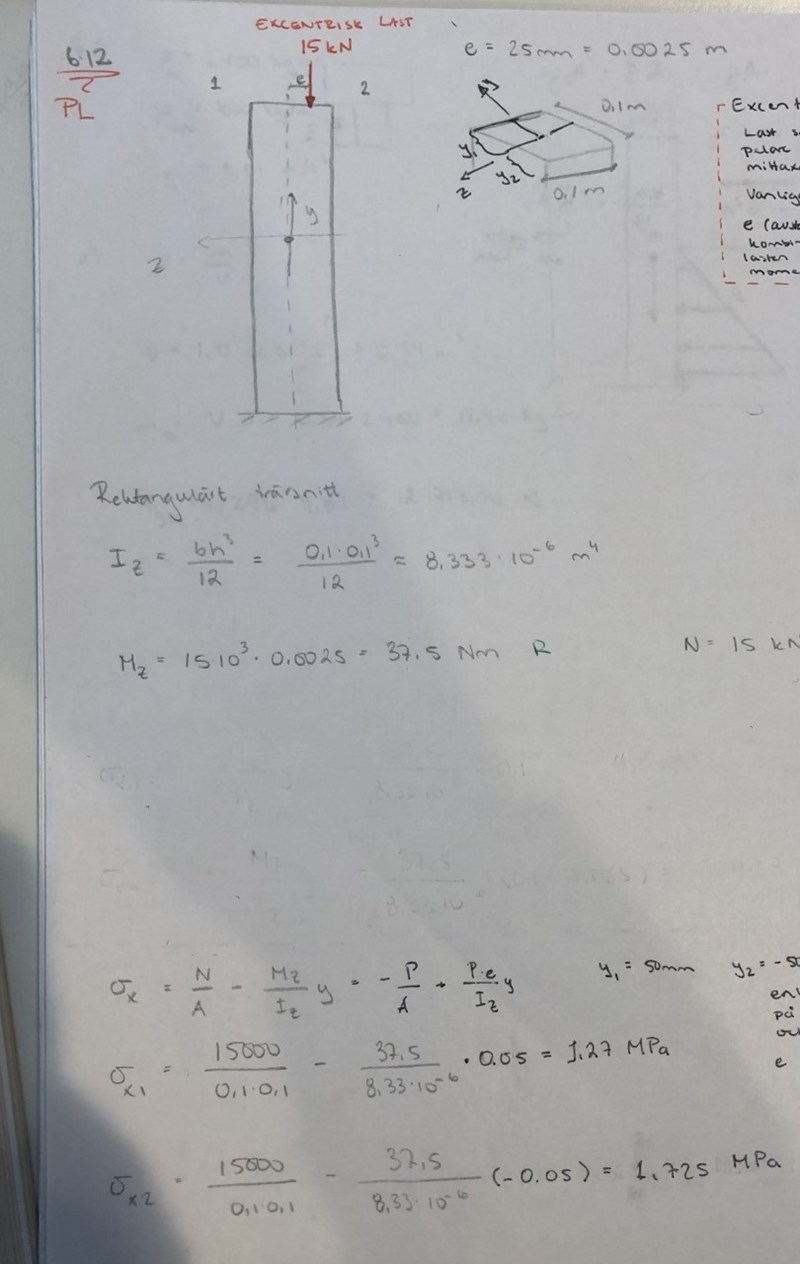 EXCENTRISK LAST
15 kN
e = 25mm = 0.0025 m
6.12
PL
1
e
2
0,1m
y1
y2
z
0.1m
y
z
Excent
Last s
pelare
mittax
Vanlig
e (avst
kombin
lasten
mome
Rektangulärt tvärsnitt
Iz = bh³/12 = 0,1·0,1³/12 = 8,333·10⁻⁶ m⁴
Mz = 15·10³·0.0025 = 37.5 Nm R
N = 15 kN
σx = N/A - Mz/Iz y = -P/A + P·e/Iz y
y1 = 50mm y2 = -50
σx1 = 15000/0,1·0,1 - 37,5/8,33·10⁻⁶ · 0.05 = 1.27 MPa
e
σx2 = 15000/0,1·0,1 - 37,5/8,33·10⁻⁶ (-0.05) = 1.725 MPa